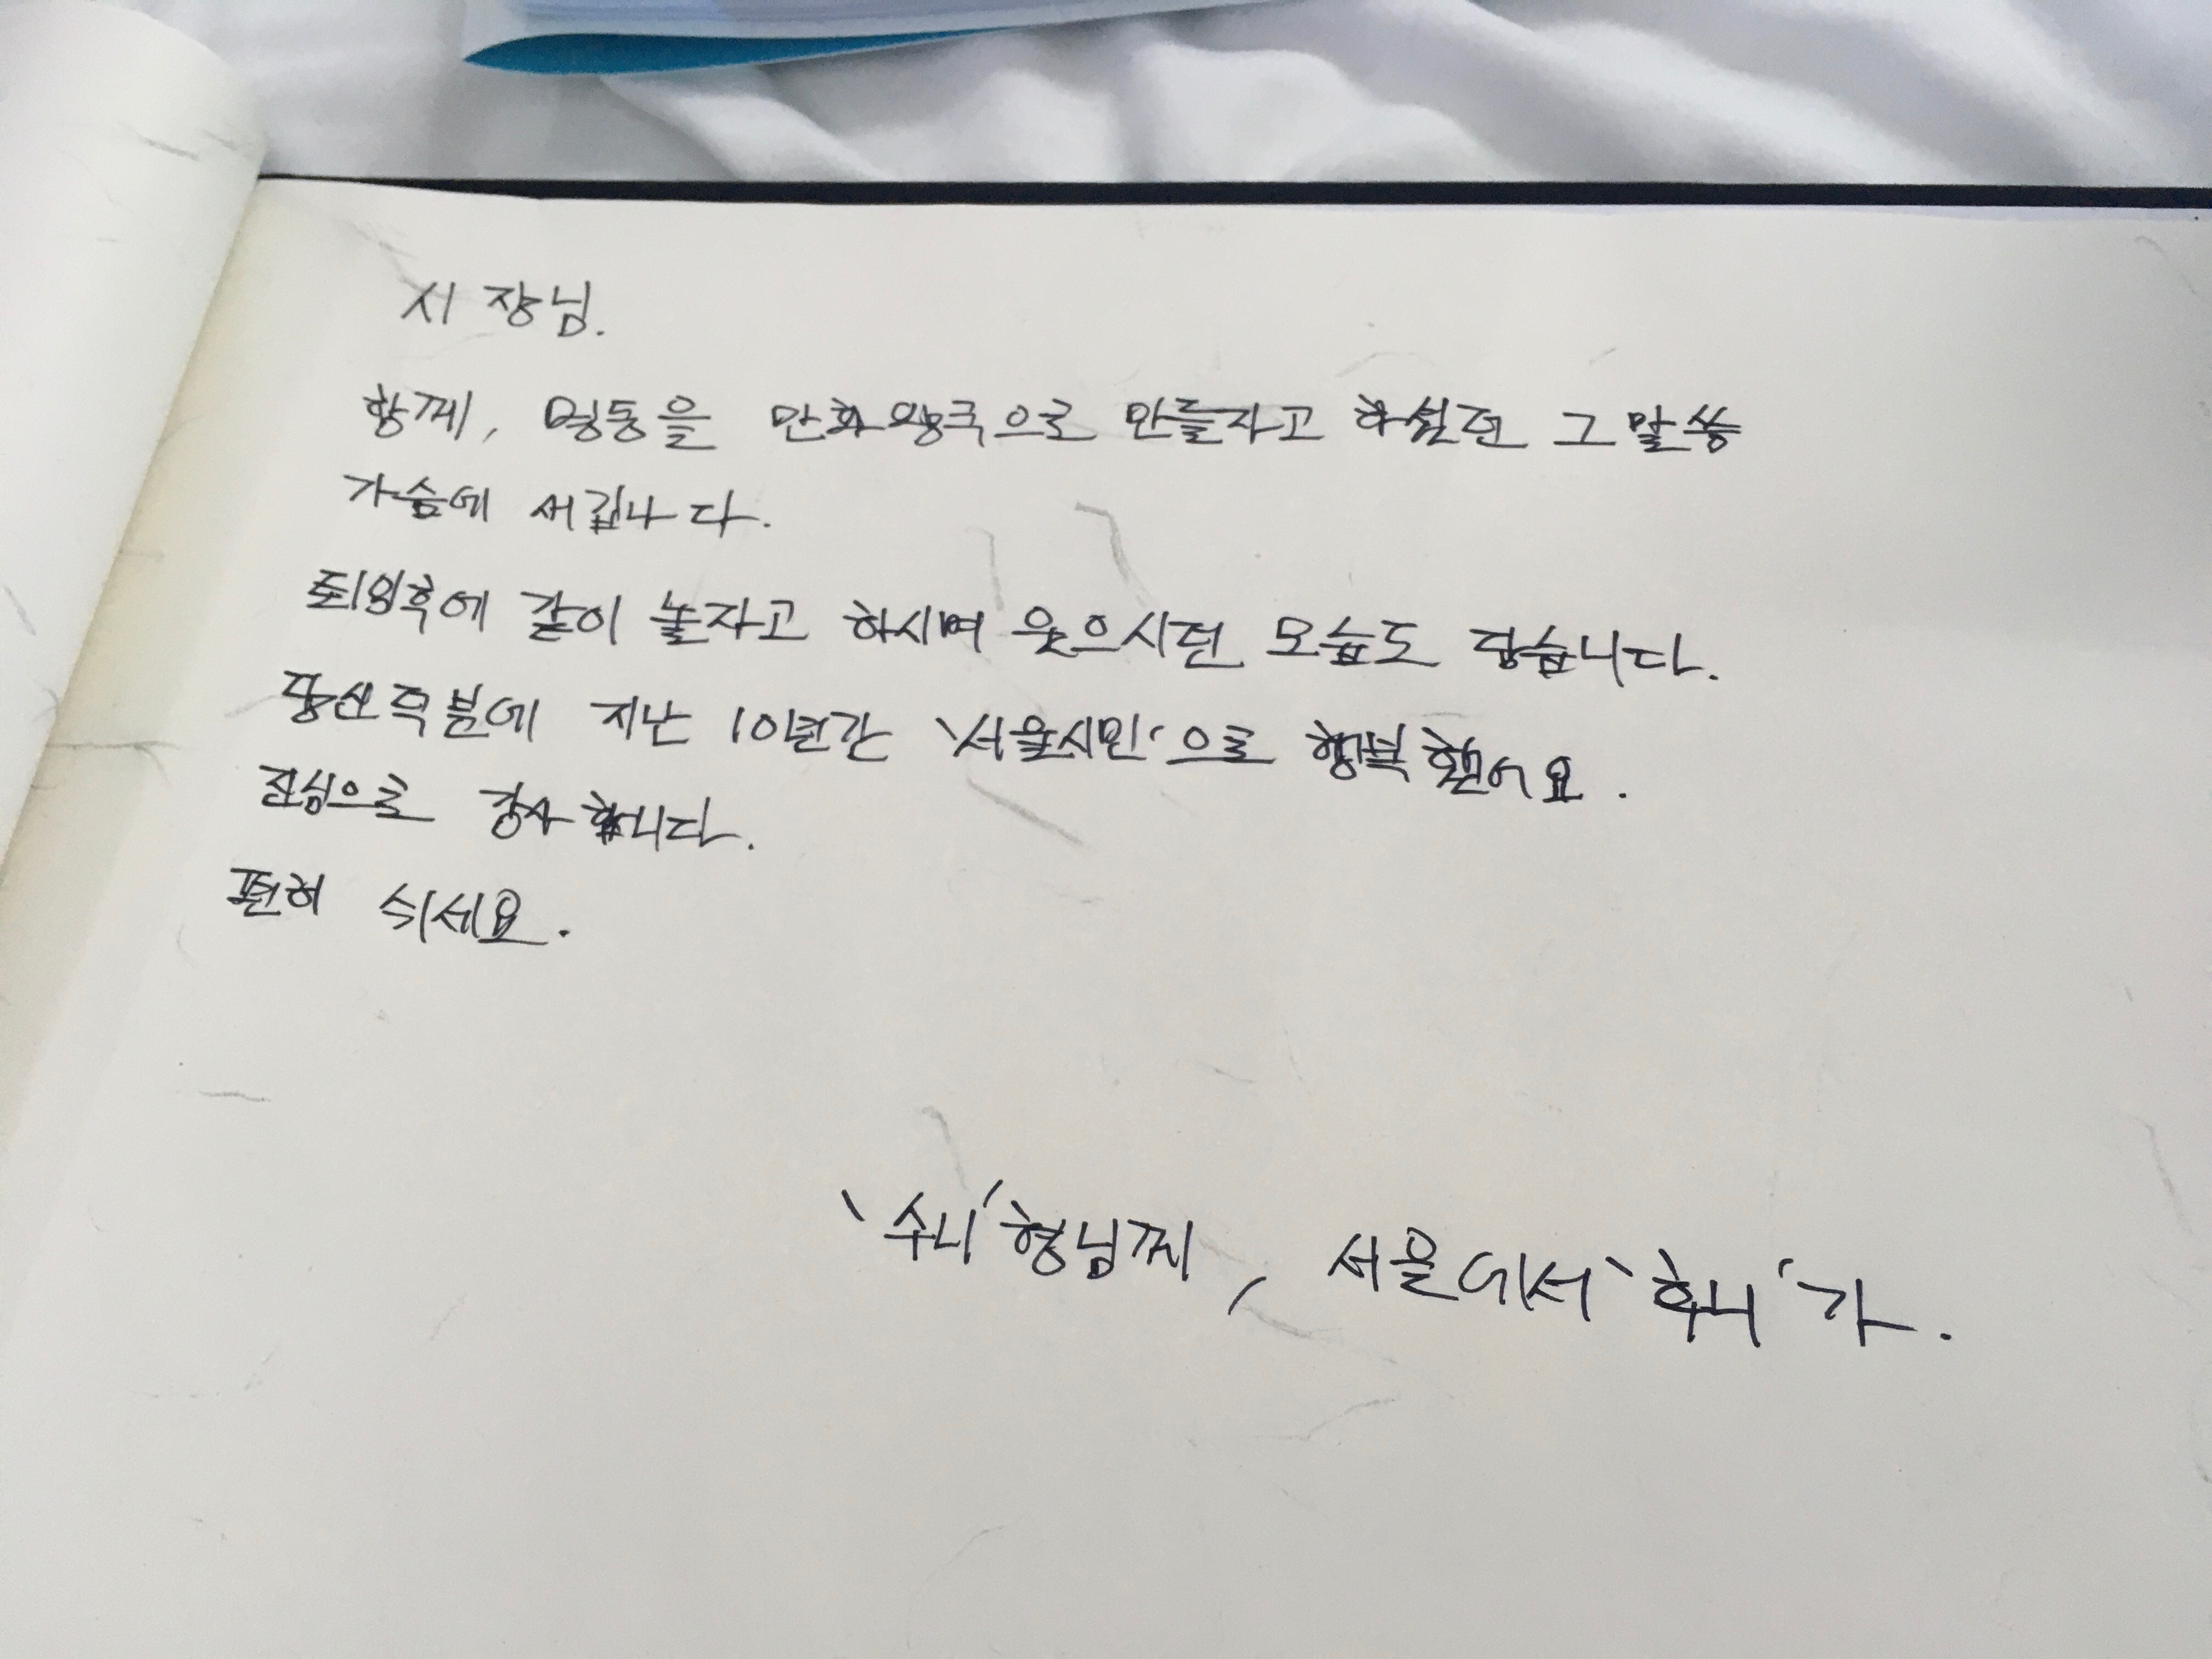 시장님.
함께, 명동을 만화왕국으로 만들자고 하셨던 그 말씀
가슴에 새깁니다.
퇴임후에 같이 놀자고 하시며 웃으시던 모습도 담습니다.
당신 덕분에 지난 10년간 '서울시민'으로 행복했어요.
진심으로 감사합니다.
편히 쉬세요.
'수니'형님께, 서울에서 '후니'가.